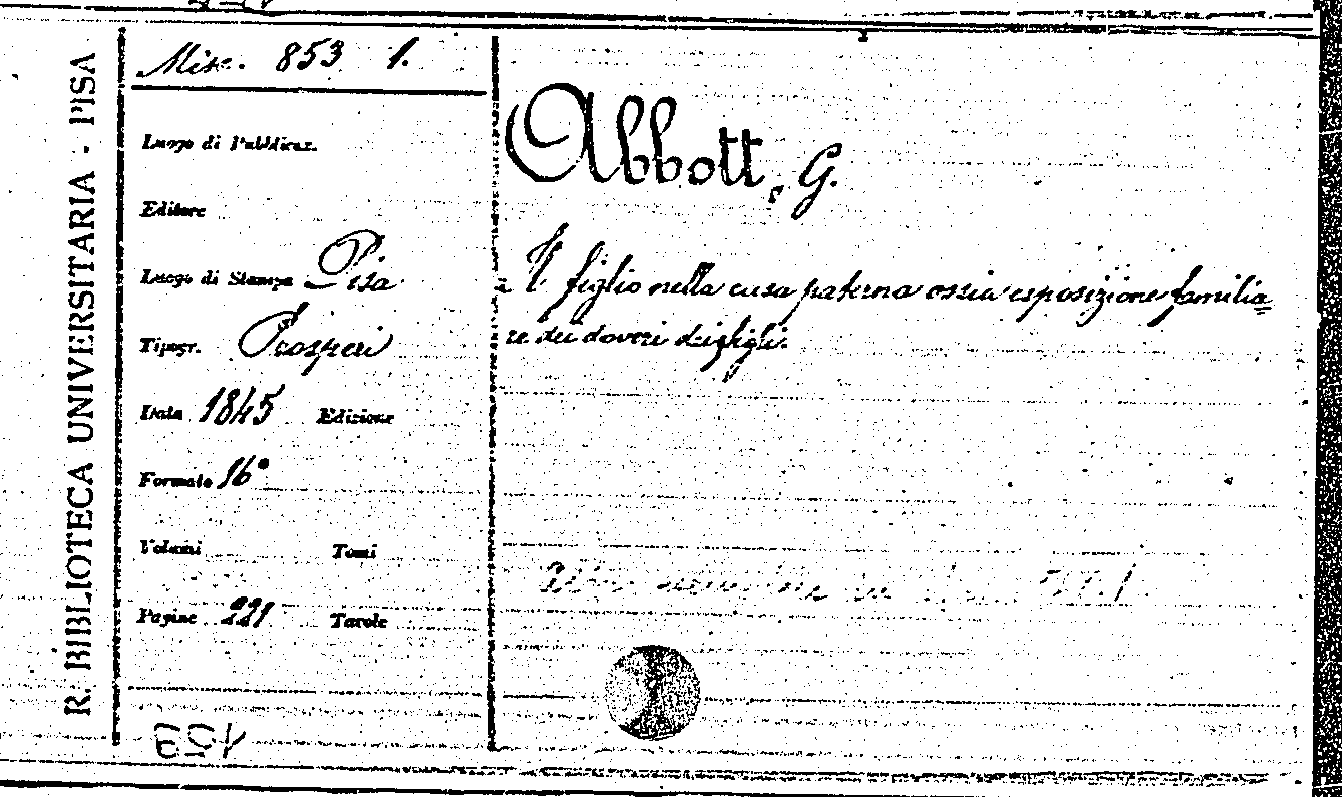 R. BIBLIOTECA UNIVERSITARIA - PISA
Misc. 853 1.
Luogo di Pubblicaz.
Editore
Luogo di Stampa Pisa
Tipogr. Prosperi
Data 1845 Edizione
Formato 16°
Volumi Tomi
Pagine 221 Tavole
Abbott, G.
Il figlio nella casa paterna ossia esposizione familia=
re dei doveri dei figli.